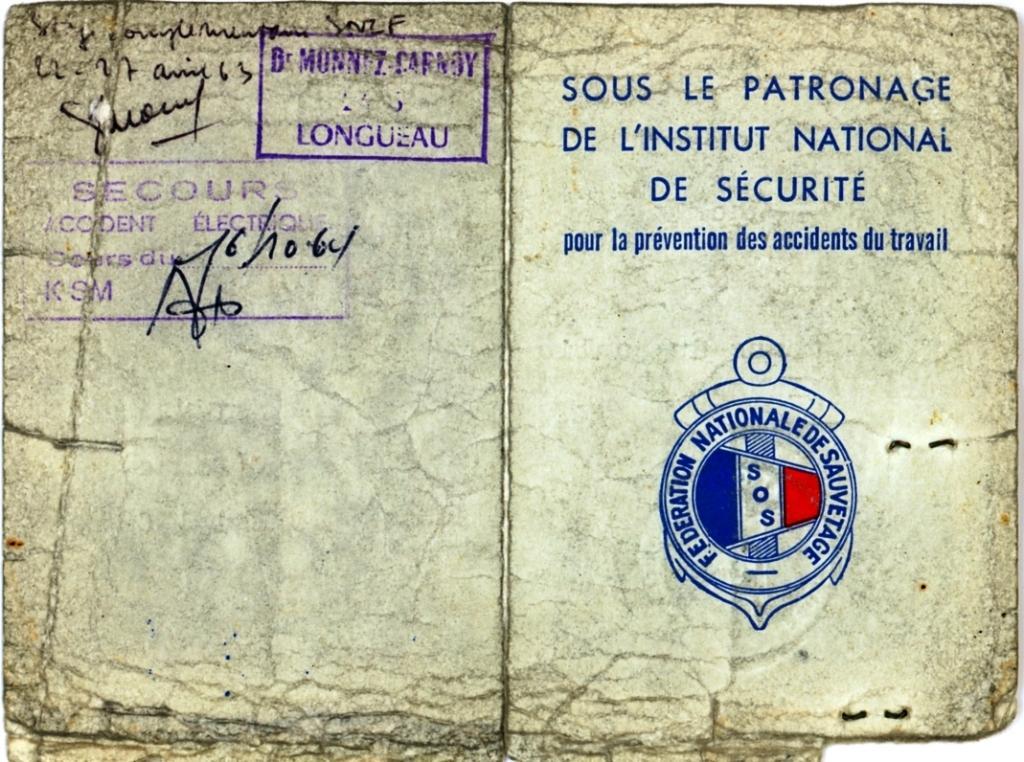 22-27 avril 63
Dr MUNNEZ-CARNOY
LONGUEAU
SECOURS
ACCIDENT ÉLECTRIQUE
Cours du 16/10-64
K SM
SOUS LE PATRONAGE
DE L'INSTITUT NATIONAL
DE SÉCURITÉ
pour la prévention des accidents du travail
FÉDÉRATION NATIONALE DE SAUVETAGE
SOS